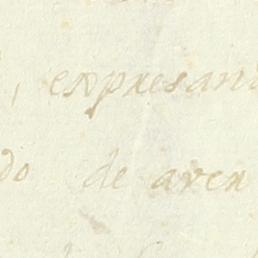 , expresan
do de aven